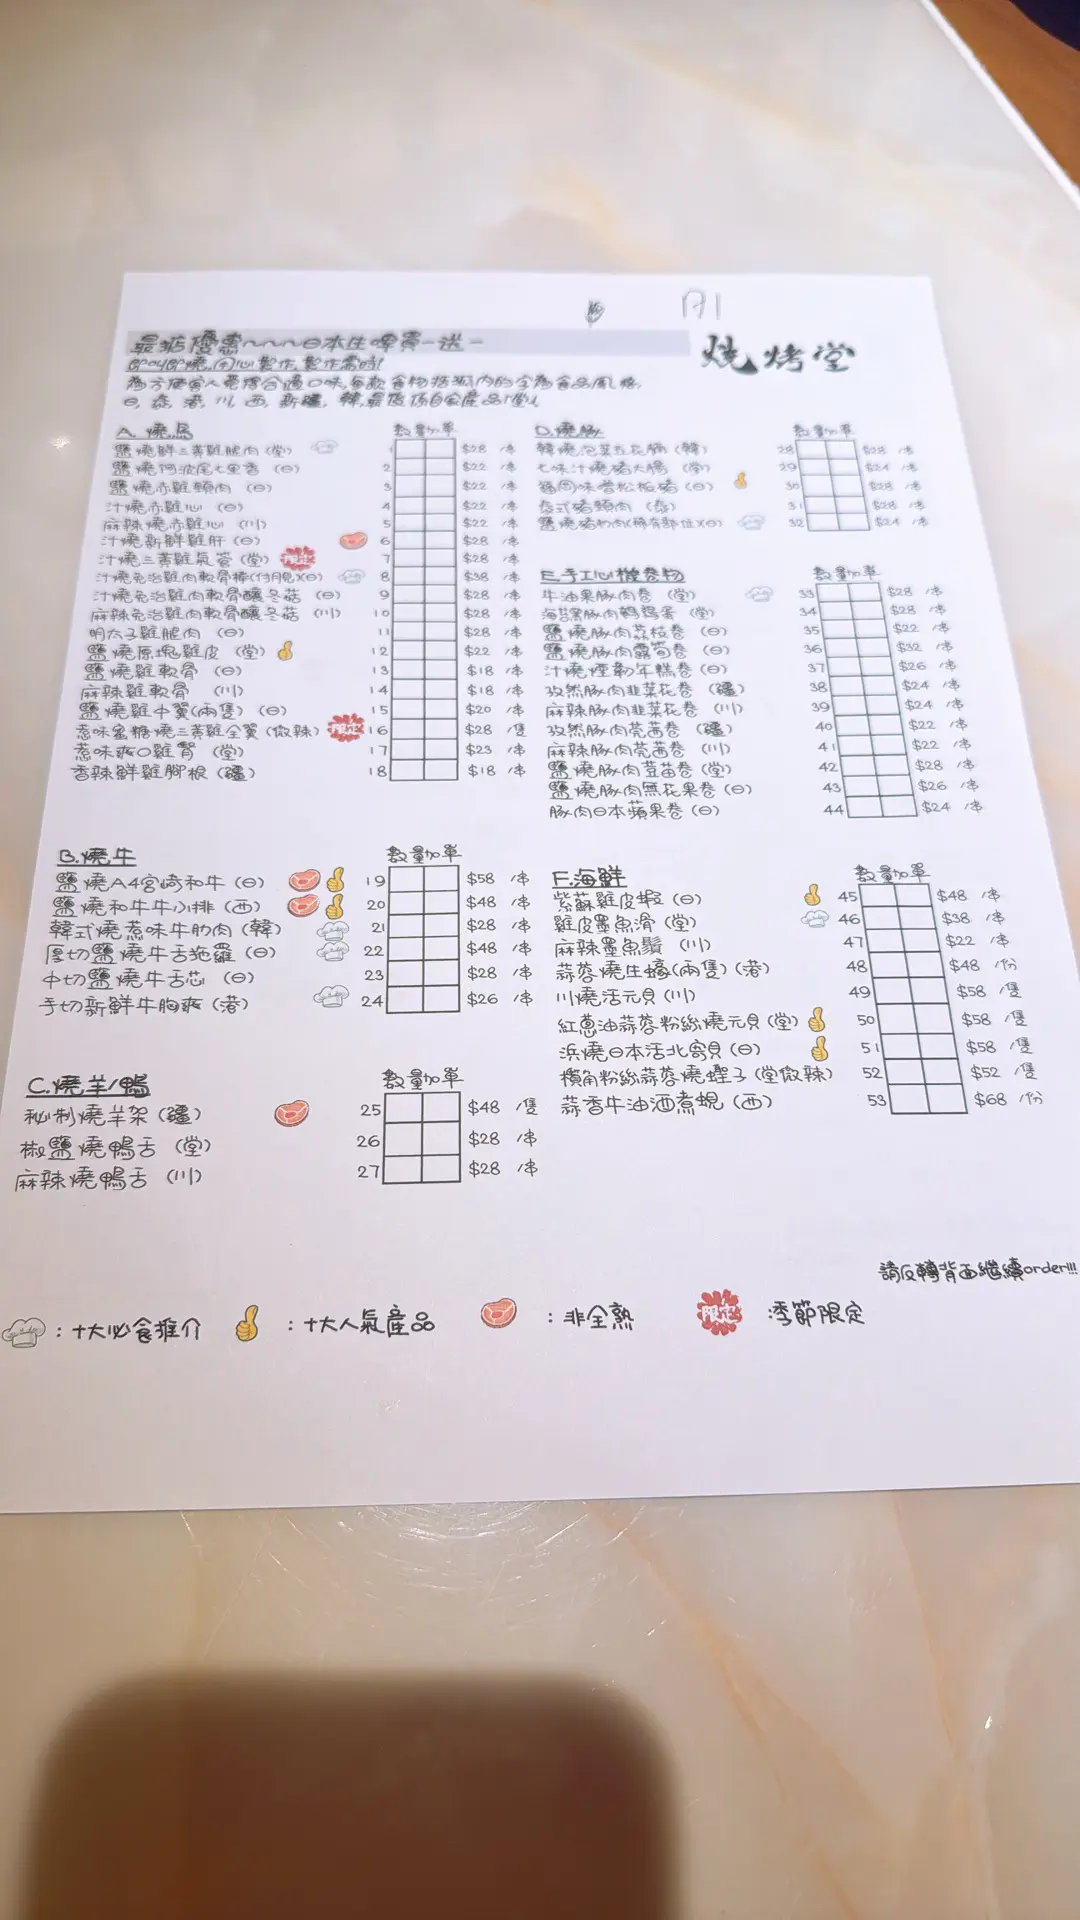 A1
最抵優惠~~~日本生啤買一送一
燒烤堂
即叫即燒,用心製作,製作需時!
為方便客人選擇合適口味,每款食物括弧內的字為食品風格,
日, 泰, 港, 川, 西, 新疆, 韓,最後係自家產品!堂!
A. 燒鳥 數量加單
鹽燒鮮三黃雞腿肉(堂) 1 $28 /串
鹽燒阿波尾七里香 (日) 2 $22 /串
鹽燒赤雞頸肉 (日) 3 $22 /串
汁燒赤雞心 (日) 4 $22 /串
麻辣燒赤雞心 (川) 5 $22 /串
汁燒新鮮雞肝 (日) 6 $28 /串
汁燒三黃雞氣管 (堂) 限定 7 $28 /串
汁燒免治雞肉軟骨棒(付月見)(日) 8 $38 /串
汁燒免治雞肉軟骨釀冬菇 (日) 9 $28 /串
麻辣免治雞肉軟骨釀冬菇 (川) 10 $28 /串
明太子雞腿肉 (日) 11 $28 /串
鹽燒原塊雞皮 (堂) 12 $22 /串
鹽燒雞軟骨 (日) 13 $18 /串
麻辣雞軟骨 (川) 14 $18 /串
鹽燒雞中翼(兩隻) (日) 15 $20 /串
惹味蜜糖燒三黃雞全翼 (微辣) 限定 16 $28 /隻
惹味爽口雞腎 (堂) 17 $23 /串
香辣鮮雞腳根 (疆) 18 $18 /串
B.燒牛 數量加單
鹽燒A4宮崎和牛 (日) 19 $58 /串
鹽燒和牛牛小排 (西) 20 $48 /串
韓式燒惹味牛肋肉 (韓) 21 $28 /串
厚切鹽燒牛舌拖羅 (日) 22 $48 /串
中切鹽燒牛舌芯 (日) 23 $28 /串
手切新鮮牛胸爽 (港) 24 $26 /串
C.燒羊/鴨 數量加單
秘制燒羊架 (疆) 25 $48 /隻
椒鹽燒鴨舌 (堂) 26 $28 /串
麻辣燒鴨舌 (川) 27 $28 /串
D.燒豚 數量加單
韓燒泡菜五花腩 (韓) 28 $28 /串
七味汁燒豬大腸 (堂) 29 $24 /串
福岡味噌松板豬 (日) 30 $28 /串
泰式豬頸肉 (泰) 31 $28 /串
鹽燒豬粉肉(稀有部位)(日) 32 $24 /串
E.手工心機卷物 數量加單
牛油果豚肉卷 (堂) 33 $28 /串
海苔黑豚肉鵪鶉蛋 (堂) 34 $28 /串
鹽燒豚肉荔枝卷 (日) 35 $22 /串
鹽燒豚肉露筍卷 (日) 36 $32 /串
汁燒煙韌年糕卷 (日) 37 $26 /串
孜然豚肉韭菜花卷 (疆) 38 $24 /串
麻辣豚肉韭菜花卷 (川) 39 $24 /串
孜然豚肉芫茜卷 (疆) 40 $22 /串
麻辣豚肉芫茜卷 (川) 41 $22 /串
鹽燒豚肉荳苗卷 (堂) 42 $28 /串
鹽燒豚肉無花果卷 (日) 43 $26 /串
豚肉日本蘋果卷 (日) 44 $24 /串
F.海鮮 數量加單
紫蘇雞皮蝦 (日) 45 $48 /串
雞皮墨魚滑 (堂) 46 $38 /串
麻辣墨魚鬚 (川) 47 $22 /串
蒜蓉燒生蠔(兩隻) (港) 48 $48 /份
川燒活元貝 (川) 49 $58 /隻
紅蔥油蒜蓉粉絲燒元貝 (堂) 50 $58 /隻
浜燒日本活北寄貝 (日) 51 $58 /隻
欖角粉絲蒜蓉燒蟶子 (堂微辣) 52 $52 /隻
蒜香牛油酒煮蜆 (西) 53 $68 /份
請反轉背面繼續order!!!
:十大必食推介 :十大人氣產品 :非全熟 限定 :季節限定